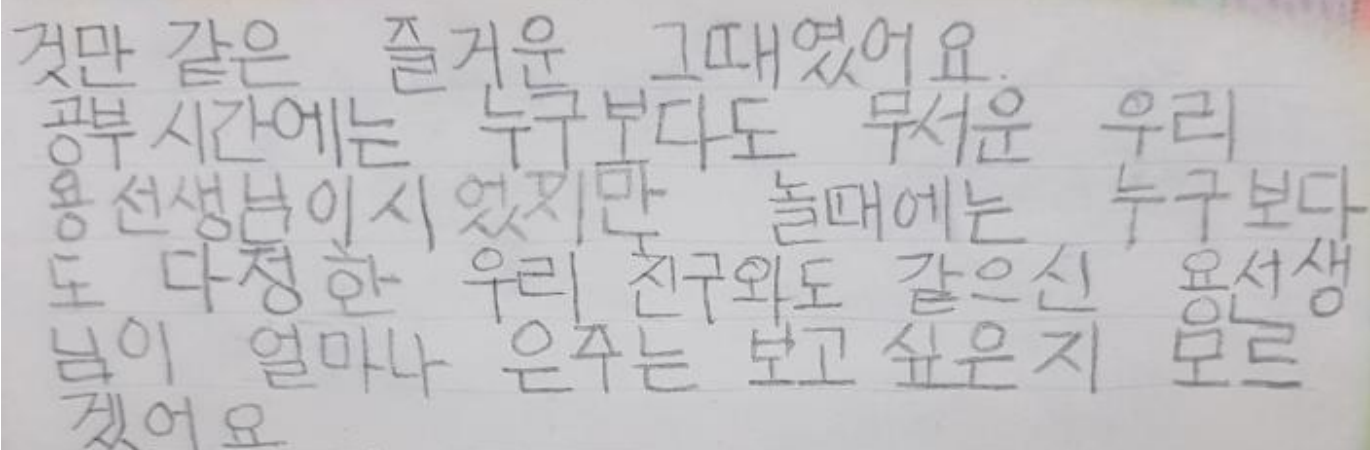 것만 같은 즐거운 그때였어요.
공부 시간에는 누구보다도 무서운 우리
용선생님이시었지만 놀때에는 누구보다
도 다정한 우리 친구와도 같으신 용선생
님이 얼마나 은주는 보고 싶은지 모르
겠어요